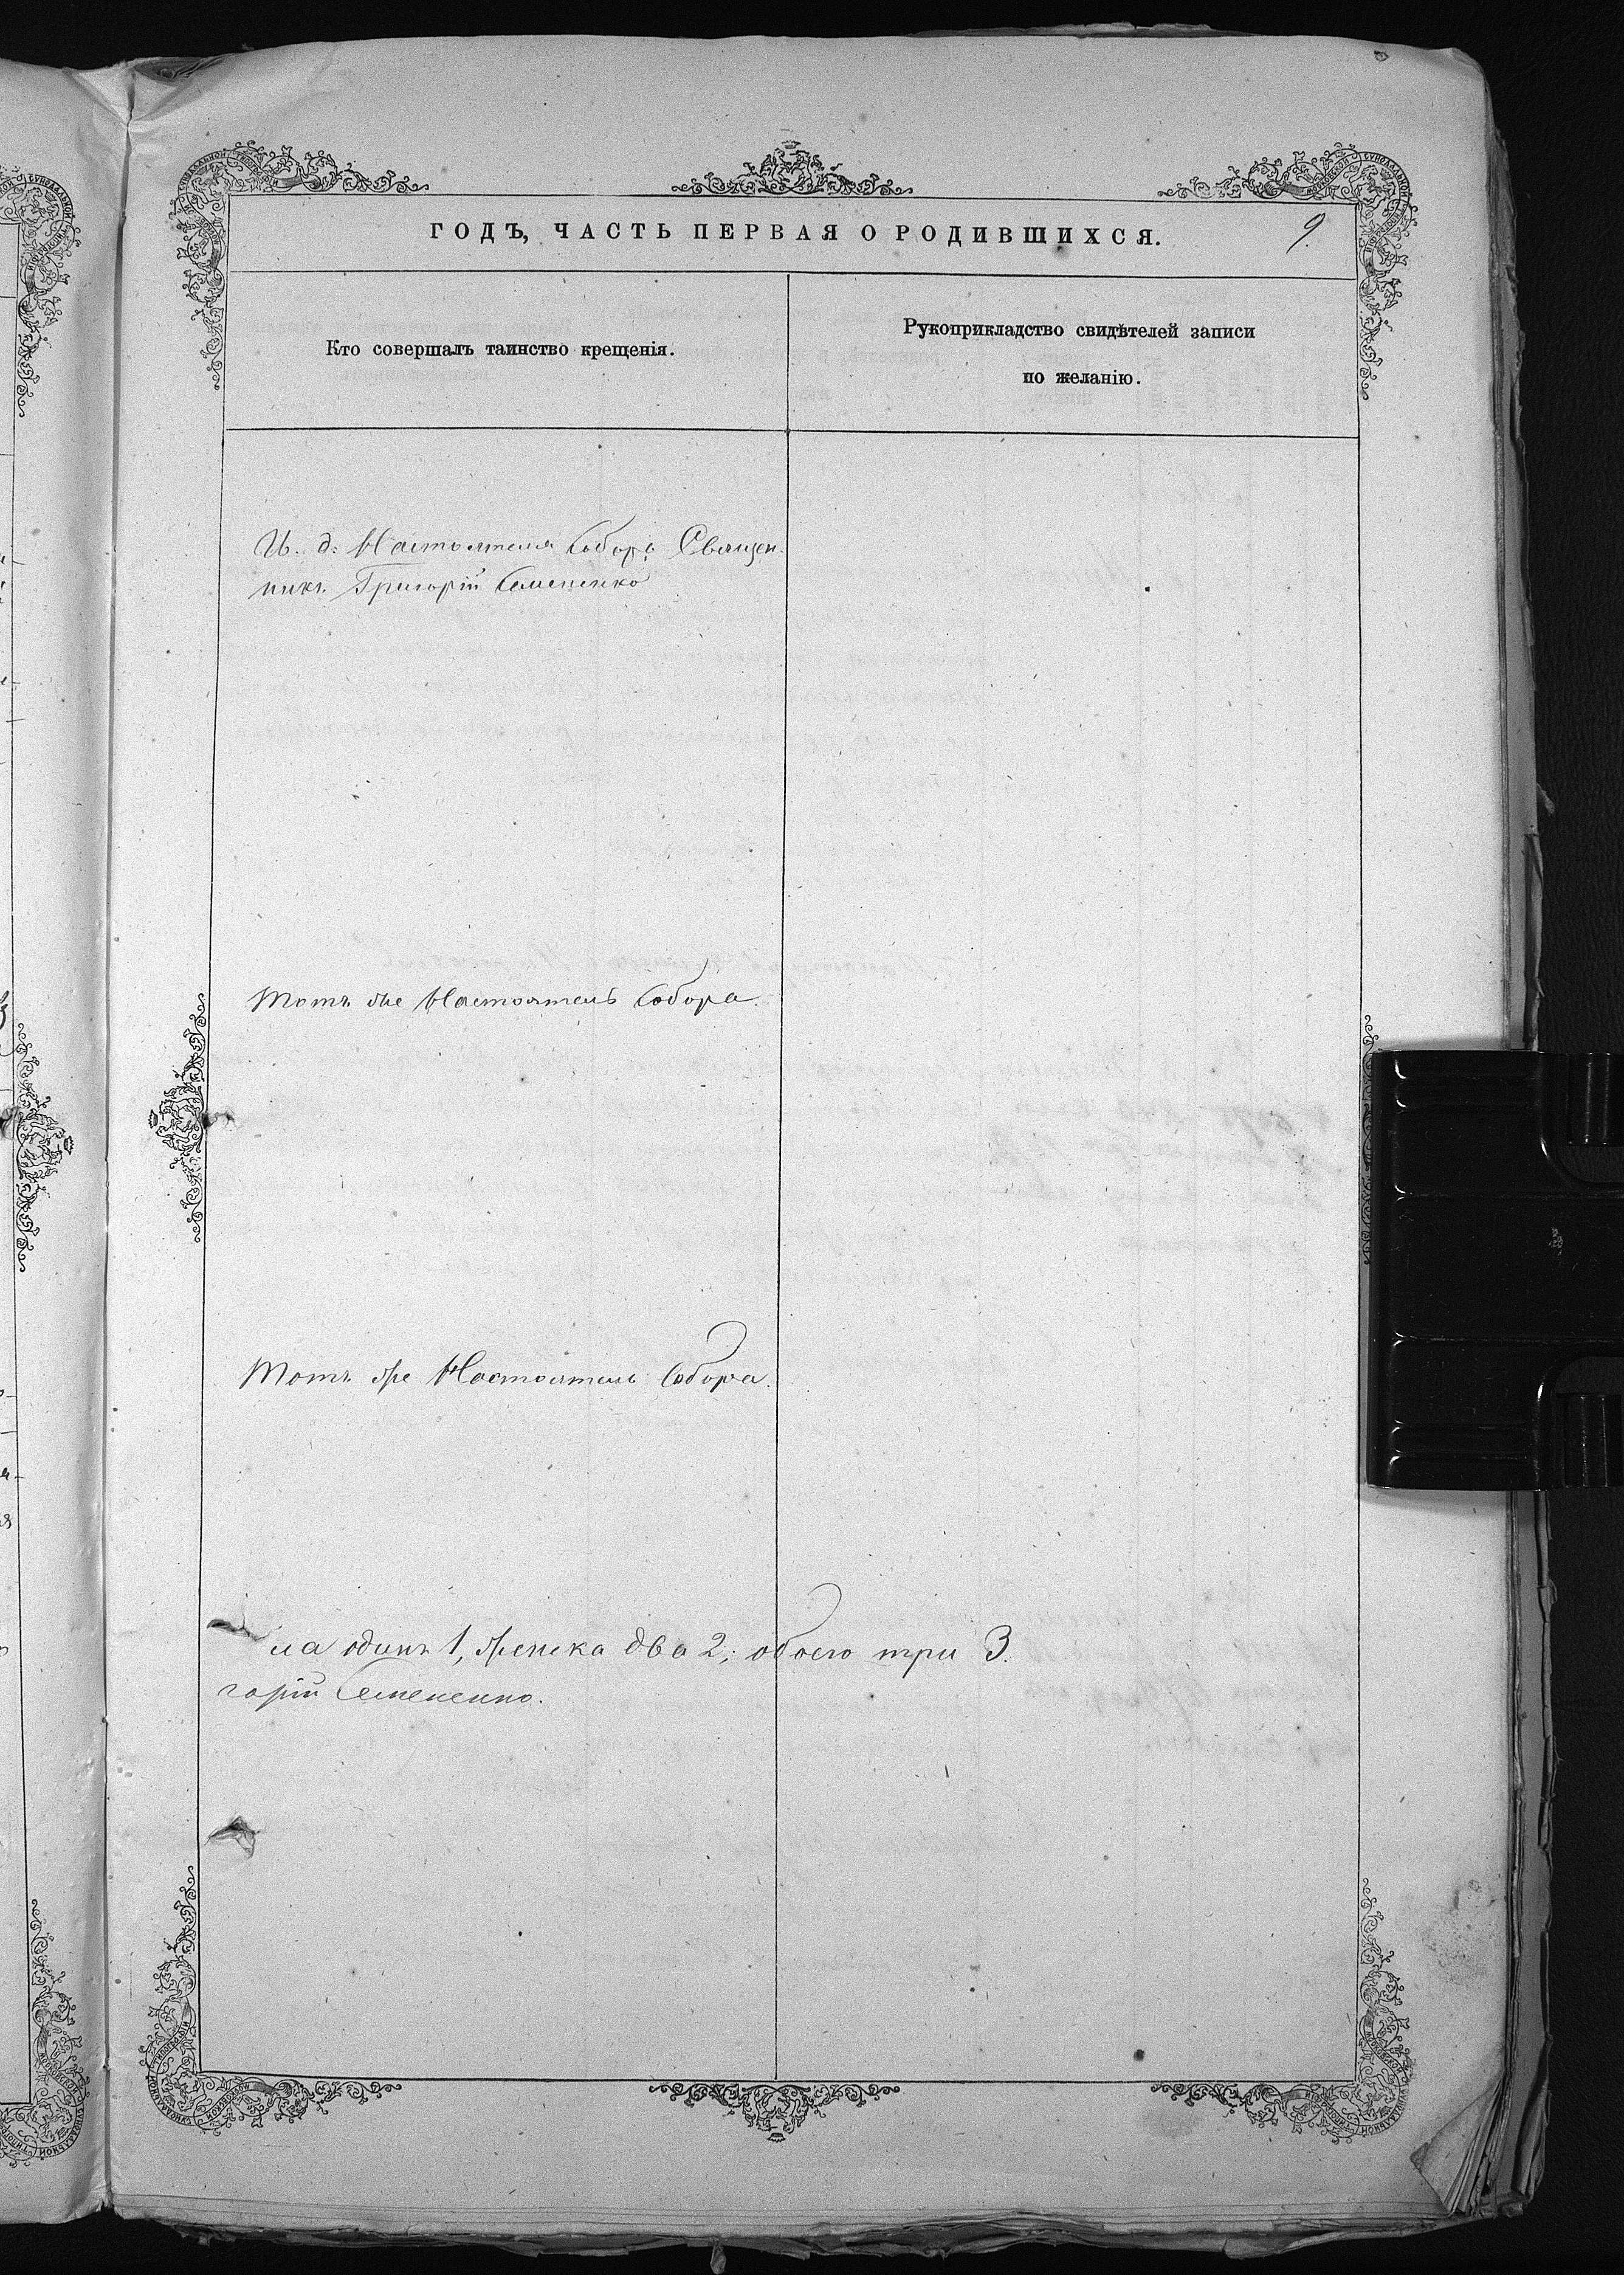 ГОДЪ, ЧАСТЬ ПЕРВАЯ О РОДИВШИХСЯ.
9.
Кто совершалъ таинство крещенія.
Рукоприкладство свидѣтелей записи
по желанію.
И. д. Настоятеля Собора Священ-
никъ Григорій Семененко
Тотъ же Настоятель Собора.
Тотъ же Настоятель Собора.
ла одинъ 1, женска два 2; обоего три 3.
горій Семененко.